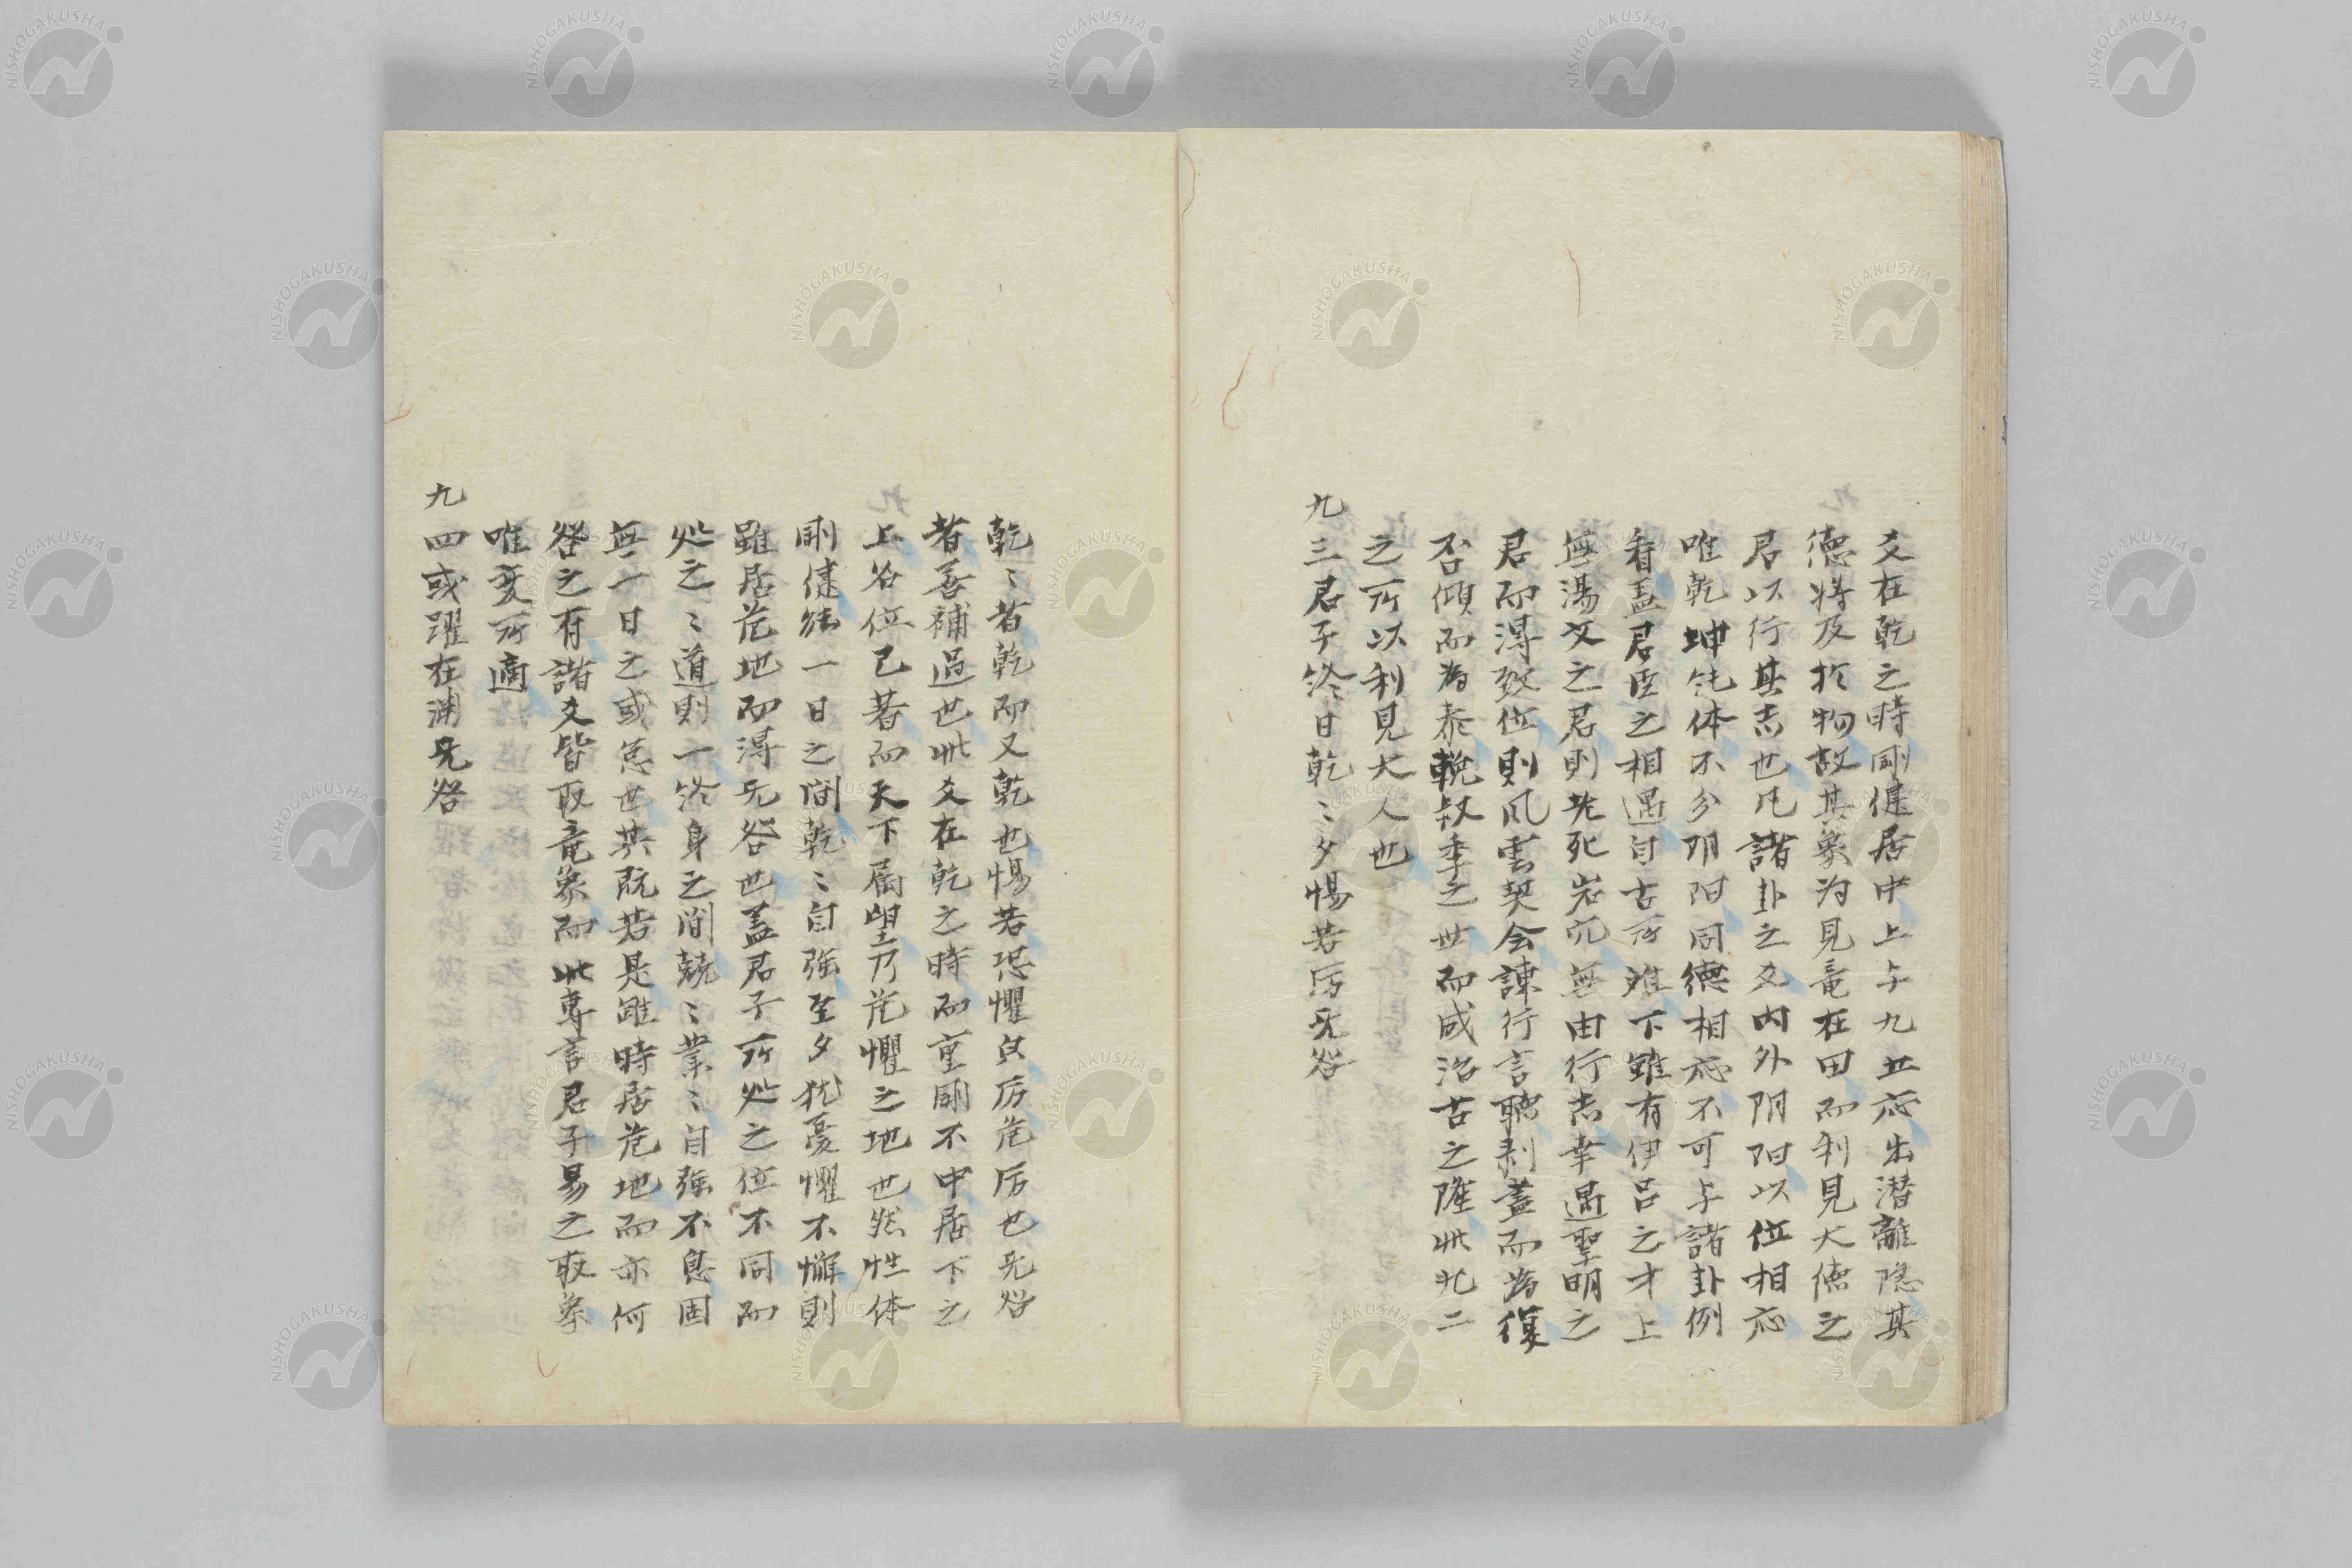 爻在乾之時剛健居中上与九五応出潜離隠其
徳将及於物故其象為見竜在田而利見大徳之
君以行其志也凡諸卦之爻内外陰陽以位相応
唯乾坤純体不分陰陽同徳相応不可与諸卦例
看蓋君臣之相遇自古所難下雖有伊呂之才上
無湯文之君則老死岩穴無由行志幸遇聖明之
君而得致位則風雲契会諫行言聴剥蓋而為復
否傾而為泰輓叔季之世而咸治古之隆此九二
之所以利見大人也
九三君子終日乾〻夕惕若厉无咎
乾〻者乾而又乾也惕若恐懼皃厉危厉也无咎
者善補過也此爻在乾之時而重剛不中居下之
上名位已著而天下属望乃危懼之地也然性体
剛健終一日之間乾〻自強至夕猶憂懼不懈則
雖居危地而得无咎也蓋君子所処之位不同而
処之〻道則一終身之間兢〻業〻自強不息固
無一日之或怠也其既若是雖時居危地而亦何
咎之有諸爻皆取竜象而此専言君子易之取象
唯変所適
九四或躍在渊无咎
NISHOGAKUSHA